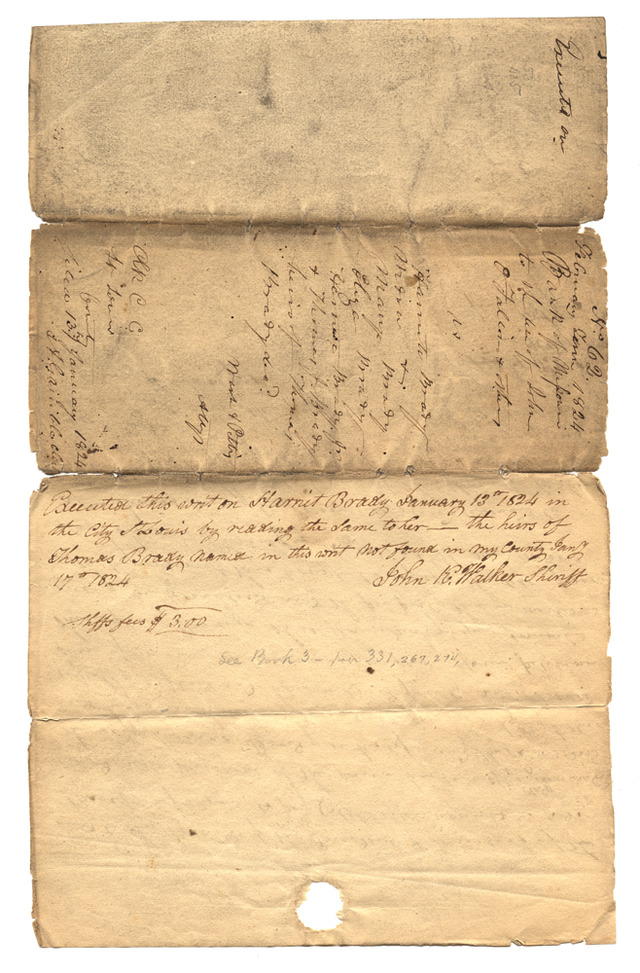 Executed on
No 62
February Term 1824
Bank of Missouri
to the use of John
O'Fallon & others
vs
Harriet Brady
Widow &
Mary Brady
Eliza Brady
Brady Jr
& Thomas Brady
heirs of Thomas
Brady decd
& Pettis
Attys
Clk C C
St Louis
County
Filed 13th January 1824
Executed this writ on Harriet Brady January 13th 1824 in
the City St Louis by reading the same to her — the heirs of
Thomas Brady named in this writ not found in my County Jany
17th 1824 John K. Walker Shiriff
Shffs fees $ 3.00
See Book 3 — 331, 267, 274,